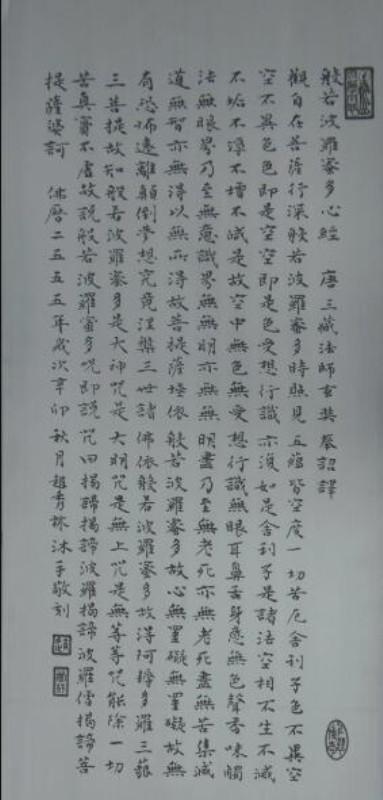 般若波羅蜜多心經 唐三藏法師玄奘奉詔譯
觀自在菩薩行深般若波羅蜜多時照見五蘊皆空度一切苦厄舍利子色不異空
空不異色色即是空空即是色受想行識亦復如是舍利子是諸法空相不生不滅
不垢不淨不增不減是故空中無色無受想行識無眼耳鼻舌身意無色聲香味觸
法無眼界乃至無意識界無無明亦無無明盡乃至無老死亦無老死盡無苦集滅
道無智亦無得以無所得故菩提薩埵依般若波羅蜜多故心無罣礙無罣礙故無
有恐怖遠離顛倒夢想究竟涅槃三世諸佛依般若波羅蜜多故得阿耨多羅三藐
三菩提故知般若波羅蜜多是大神咒是大明咒是無上咒是無等等咒能除一切
苦真實不虛故說般若波羅蜜多咒即說咒曰揭諦揭諦波羅揭諦波羅僧揭諦菩
提薩婆訶 佛曆二五五五年歲次辛卯秋月秀林沐手敬刻